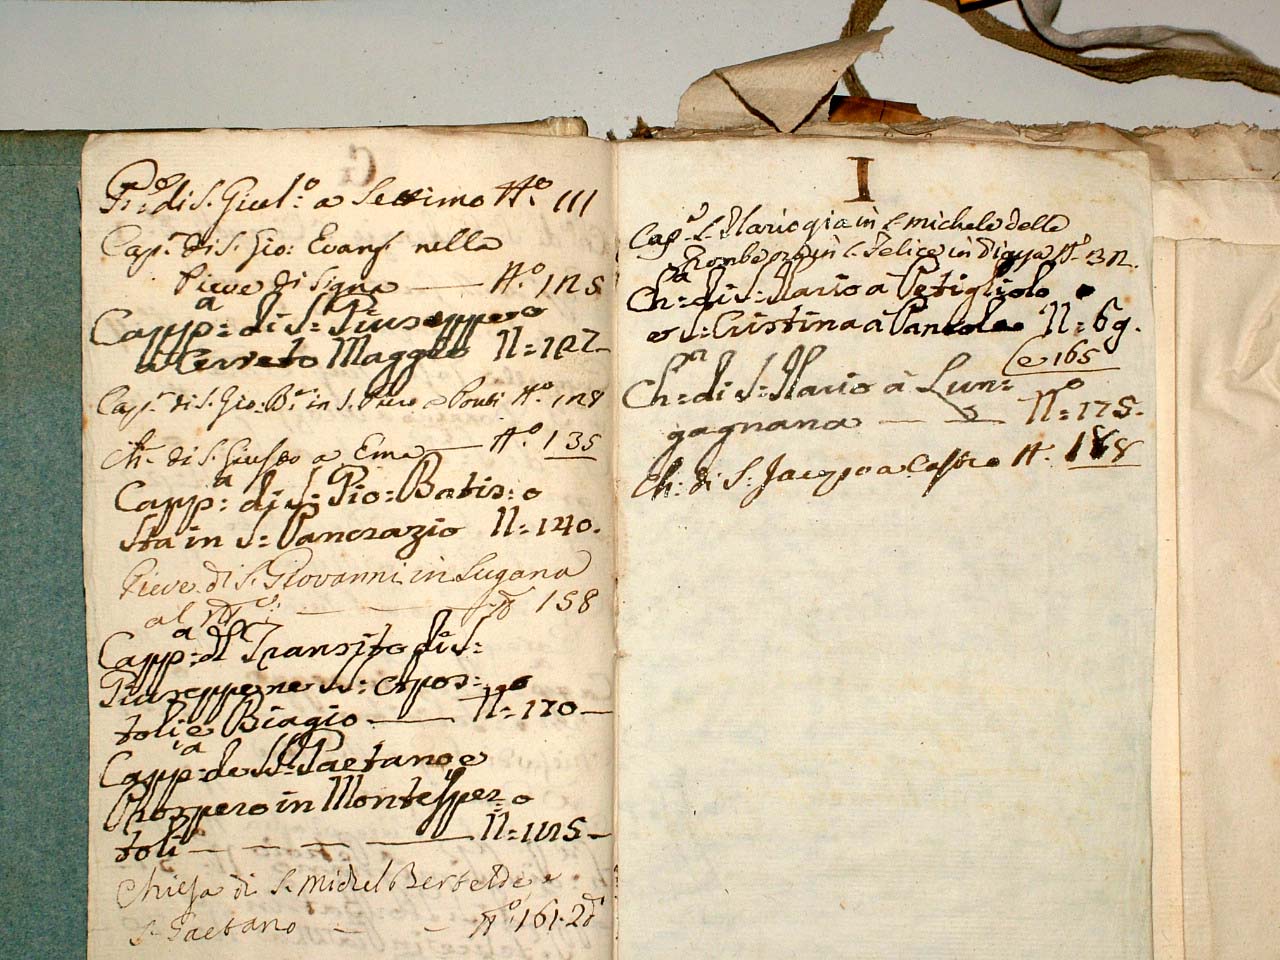 G
Pri.a di S. Giul.o a Settimo N.o 111
Capp.a di S. Gio: Evang.
nella
Pieve di Signa — N.o 125
Capp:a di S: Giuseppe
a Cerreto Maggio N:o 127–
Capp.a di S. Gio: B.a in S. Piero a Ponti N.o 128
Ch.a di S. Giusto a Ema — N.o 135
Capp:a di S: Gio: Batis:
sta in S: Pancrazio N:o 140.
Pieve di S. Giovanni in Sugana
al — — N.o 158
Capp:a d Transito di S:
Giuseppe ne SS: Apos:
toli e Biagio — N:o 170 —
Capp:a de SS: Gaetano e
Prospero in Montesper:
toli — — — — N:o 1125 –
Chiesa di S. Michel Bertelde, e
S. Gaetano — — N.o 161. 2.o
I
Capp.a S. Ilario gia in S. Michele delle
Trombe ora in S. Felice in Piazza N.o 132.
Ch:a di S: Ilario à Petigliolo
e S: Cristina à Pancole N:o 69.
e 165
Ch:a di S: Ilario à Lun:
gagnana — — N:o 175.
Ch: di S: Jacopo a Castro N.o 188